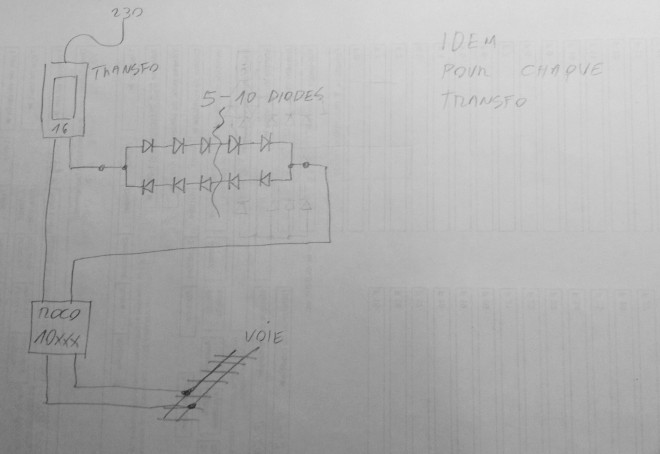 230
TRANSFO
16
5-10 DIODES
IDEM
POUR CHAQUE
TRANSFO
ROCO
10XXX
VOIE